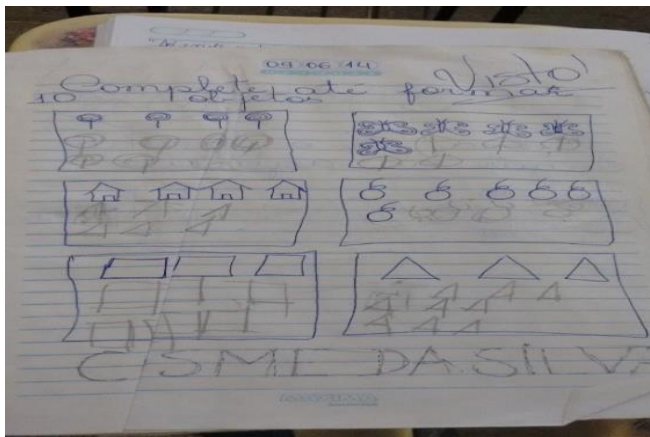 09.06.14.
Visto!
Complete até formar
10 objetos
CISME DA SILVA